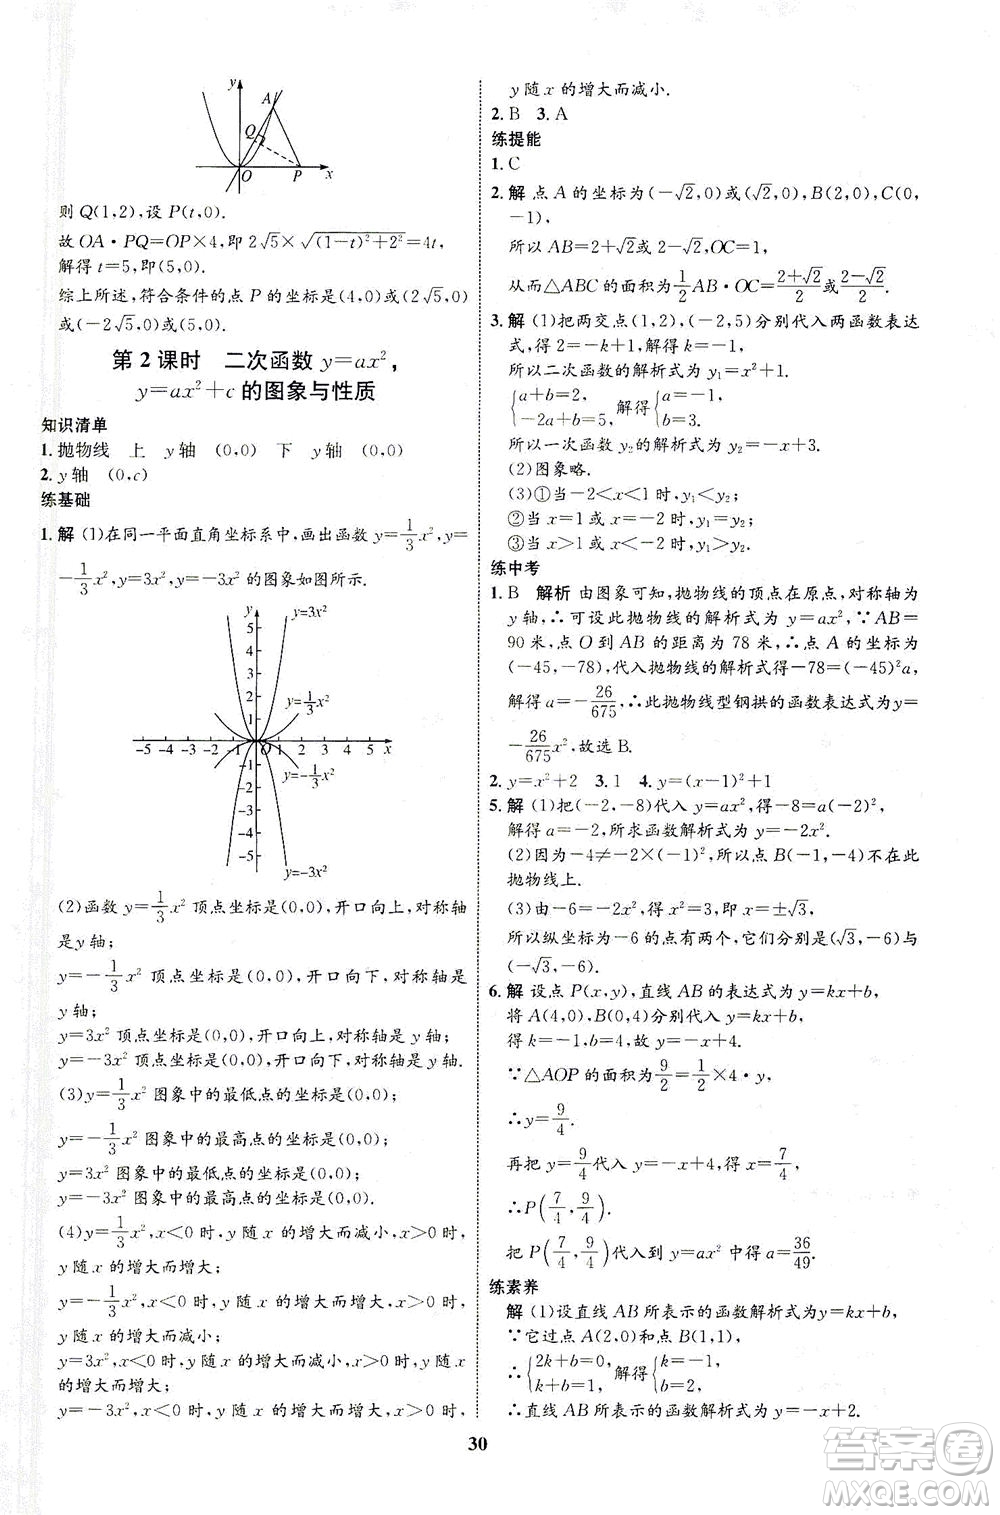 y
A
Q
O
P
x
则 Q(1,2),设 P(t,0).
故 OA·PQ=OP×4,即 2√5×√((1-t)²+2²)=4t,
解得 t=5,即(5,0).
综上所述,符合条件的点 P 的坐标是(4,0)或(2√5,0)
或(-2√5,0)或(5,0).
第 2 课时 二次函数 y=ax²,
y=ax²+c 的图象与性质
知识清单
1. 抛物线 上 y轴 (0,0) 下 y轴 (0,0)
2. y轴 (0,c)
练基础
1. 解 (1)在同一平面直角坐标系中,画出函数 y=1/3x²,y=
-1/3x²,y=3x²,y=-3x² 的图象如图所示.
y
y=3x²
5
4
3
2
1
y=1/3x²
-5 -4 -3 -2 -1 O 1 2 3 4 5 x
-1
-2
-3
-4
-5
y=-1/3x²
y=-3x²
(2)函数 y=1/3x² 顶点坐标是(0,0),开口向上,对称轴
是 y 轴;
y=-1/3x² 顶点坐标是(0,0),开口向下,对称轴是 y
轴;
y=3x² 顶点坐标是(0,0),开口向上,对称轴是 y 轴;
y=-3x² 顶点坐标是(0,0),开口向下,对称轴是 y 轴.
(3)y=1/3x² 图象中的最低点的坐标是(0,0);
y=-1/3x² 图象中的最高点的坐标是(0,0);
y=3x² 图象中的最低点的坐标是(0,0);
y=-3x² 图象中的最高点的坐标是(0,0).
(4)y=1/3x²,x<0 时,y 随 x 的增大而减小,x>0 时,
y 随 x 的增大而增大;
y=-1/3x²,x<0 时,y 随 x 的增大而增大,x>0 时,
y 随 x 的增大而减小;
y=3x²,x<0 时,y 随 x 的增大而减小,x>0 时,y 随 x
的增大而增大;
y=-3x²,x<0 时,y 随 x 的增大而增大,x>0 时,
y 随 x 的增大而减小.
2. B 3. A
练提能
1. C
2. 解 点 A 的坐标为(-√2,0)或(√2,0),B(2,0),C(0,
-1),
所以 AB=2+√2或 2-√2,OC=1,
从而△ABC 的面积为1/2AB·OC=(2+√2)/2或(2-√2)/2.
3. 解 (1)把两交点(1,2),(-2,5)分别代入两函数表达
式,得 2=-k+1,解得 k=-1.
所以二次函数的解析式为 y₁=x²+1.
{a+b=2, -2a+b=5, 解得{a=-1, b=3.
所以一次函数 y₂的解析式为 y₂=-x+3.
(2)图象略.
(3)①当-2<x<1 时,y₁<y₂;
②当 x=1 或 x=-2 时,y₁=y₂;
③当 x>1 或 x<-2 时,y₁>y₂.
练中考
1. B 解析 由图象可知,抛物线的顶点在原点,对称轴为
y 轴,∴可设此抛物线的解析式为 y=ax²,∵AB=
90 米,点 O 到 AB 的距离为 78 米,∴点 A 的坐标为
(-45,-78),代入抛物线的解析式得-78=(-45)²a,
解得 a=-26/675,∴此抛物线型钢拱的函数表达式为 y=
-26/675x²,故选 B.
2. y=x²+2 3. 1 4. y=(x-1)²+1
5. 解 (1)把(-2,-8)代入 y=ax²,得-8=a(-2)²,
解得 a=-2,所求函数解析式为 y=-2x².
(2)因为-4≠-2×(-1)²,所以点 B(-1,-4)不在此
抛物线上.
(3)由-6=-2x²,得 x²=3,即 x=±√3,
所以纵坐标为-6 的点有两个,它们分别是(√3,-6)与
(-√3,-6).
6. 解 设点 P(x,y),直线 AB 的表达式为 y=kx+b,
将 A(4,0),B(0,4)分别代入 y=kx+b,
得 k=-1,b=4,故 y=-x+4.
∵△AOP 的面积为9/2=1/2×4·y,
∴y=9/4.
再把 y=9/4代入 y=-x+4,得 x=7/4,
∴P(7/4,9/4).
把 P(7/4,9/4)代入到 y=ax² 中得 a=36/49.
练素养
解 (1)设直线 AB 所表示的函数解析式为 y=kx+b,
∵它过点 A(2,0)和点 B(1,1),
∴{2k+b=0, k+b=1, 解得{k=-1, b=2.
∴直线 AB 所表示的函数解析式为 y=-x+2.
30
答案圈
MXQE.COM